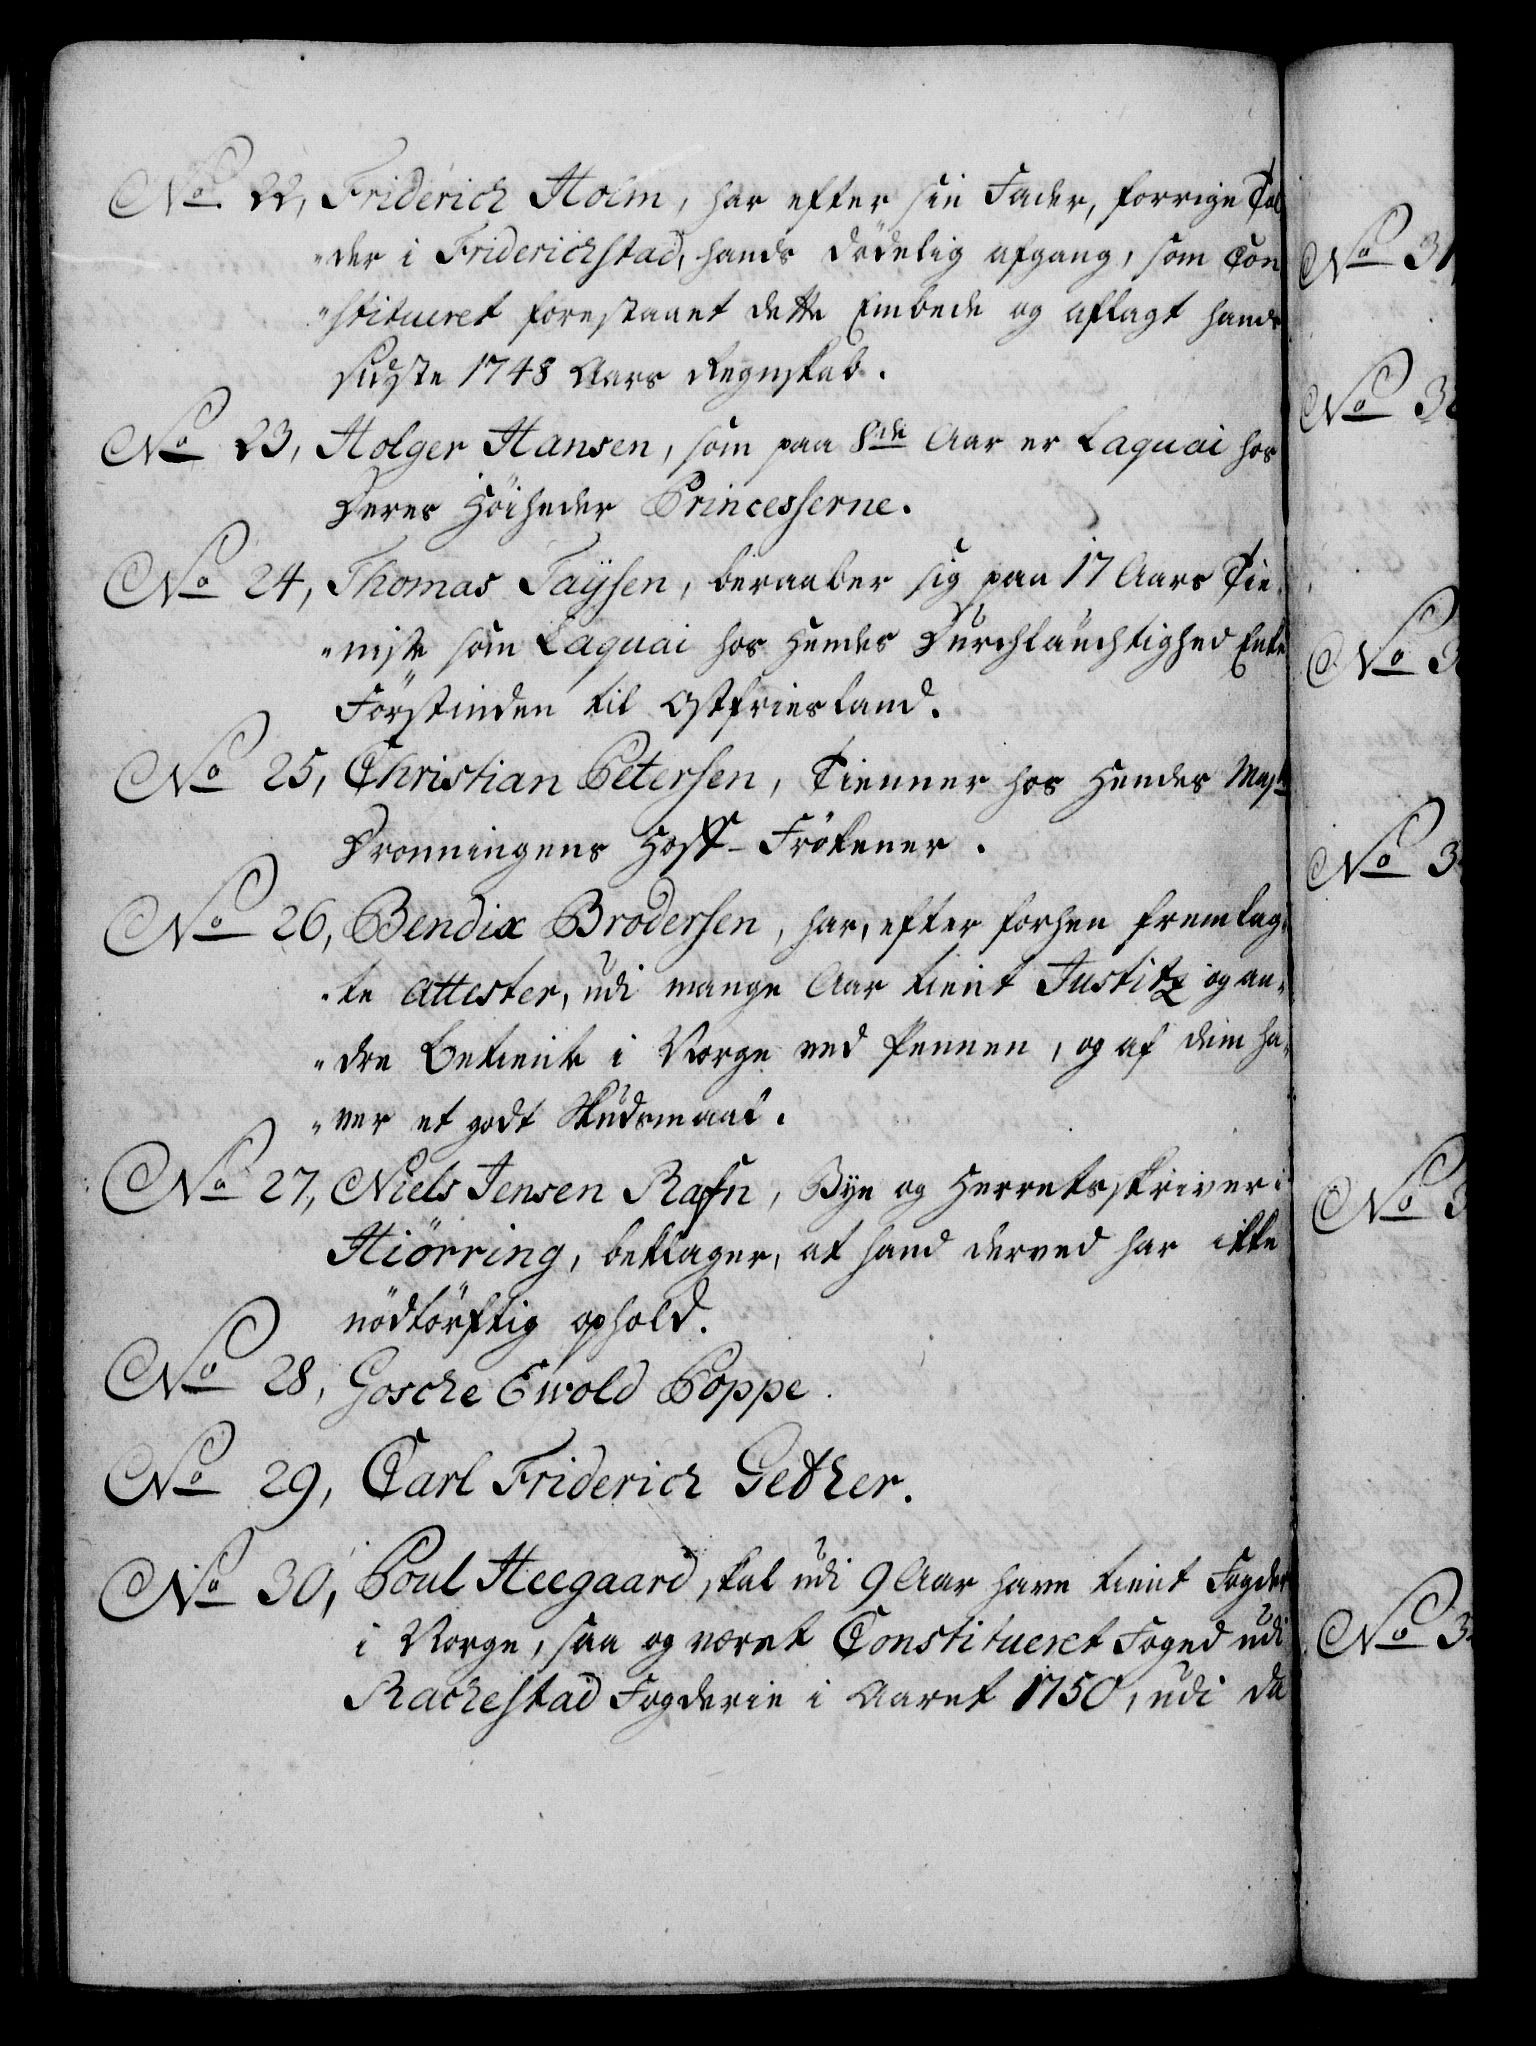 No 22, Friderich Holm, har efter sin Fader, forrige Tol
"der i Friderichstad, hands dödelig afgang, som Con
"stitueret forestaaet dette Embede og aflagt hands
sidste 1748 Aars Regnskab.
No 23, Holger Hansen, som paa 8de Aar er Laquai hos
Deres Höiheder Princesserne.
No 24, Thomas Taysen, beraaber sig paa 17 Aars Tie-
"niste som Laquai hos Hendes Durchlauchtighed Enke
Förstinden til Ostfriesland.
No 25, Christian Petersen, Tienner hos Hendes Mayts
Dronningens Hoff-Frökener.
No 26, Bendix Brodersen, har, efter forhen fremlag-
"te Attester, udi mange Aar tient Justitz og an-
"dre betiente i Norge ved Pennen, og af dem ha-
"ver et godt Skudsmaal.
No 27, Niels Jensen Rafn, Bye og Herretsskriver i
Hiörring, beklager, at hand derved har ikke
nödtörftig ophold.
No 28, Gosche Ewold Poppe.
No 29, Carl Friderich Gether.
No 30, Poul Heegaard, skal udi 9 Aar have tient Fogder
i Norge, saa og været Constitueret Foged udi
Rachestad Fogderie i Aaret 1750, udi da
No 31
No 3
No 3
No 3
No 3
No 3